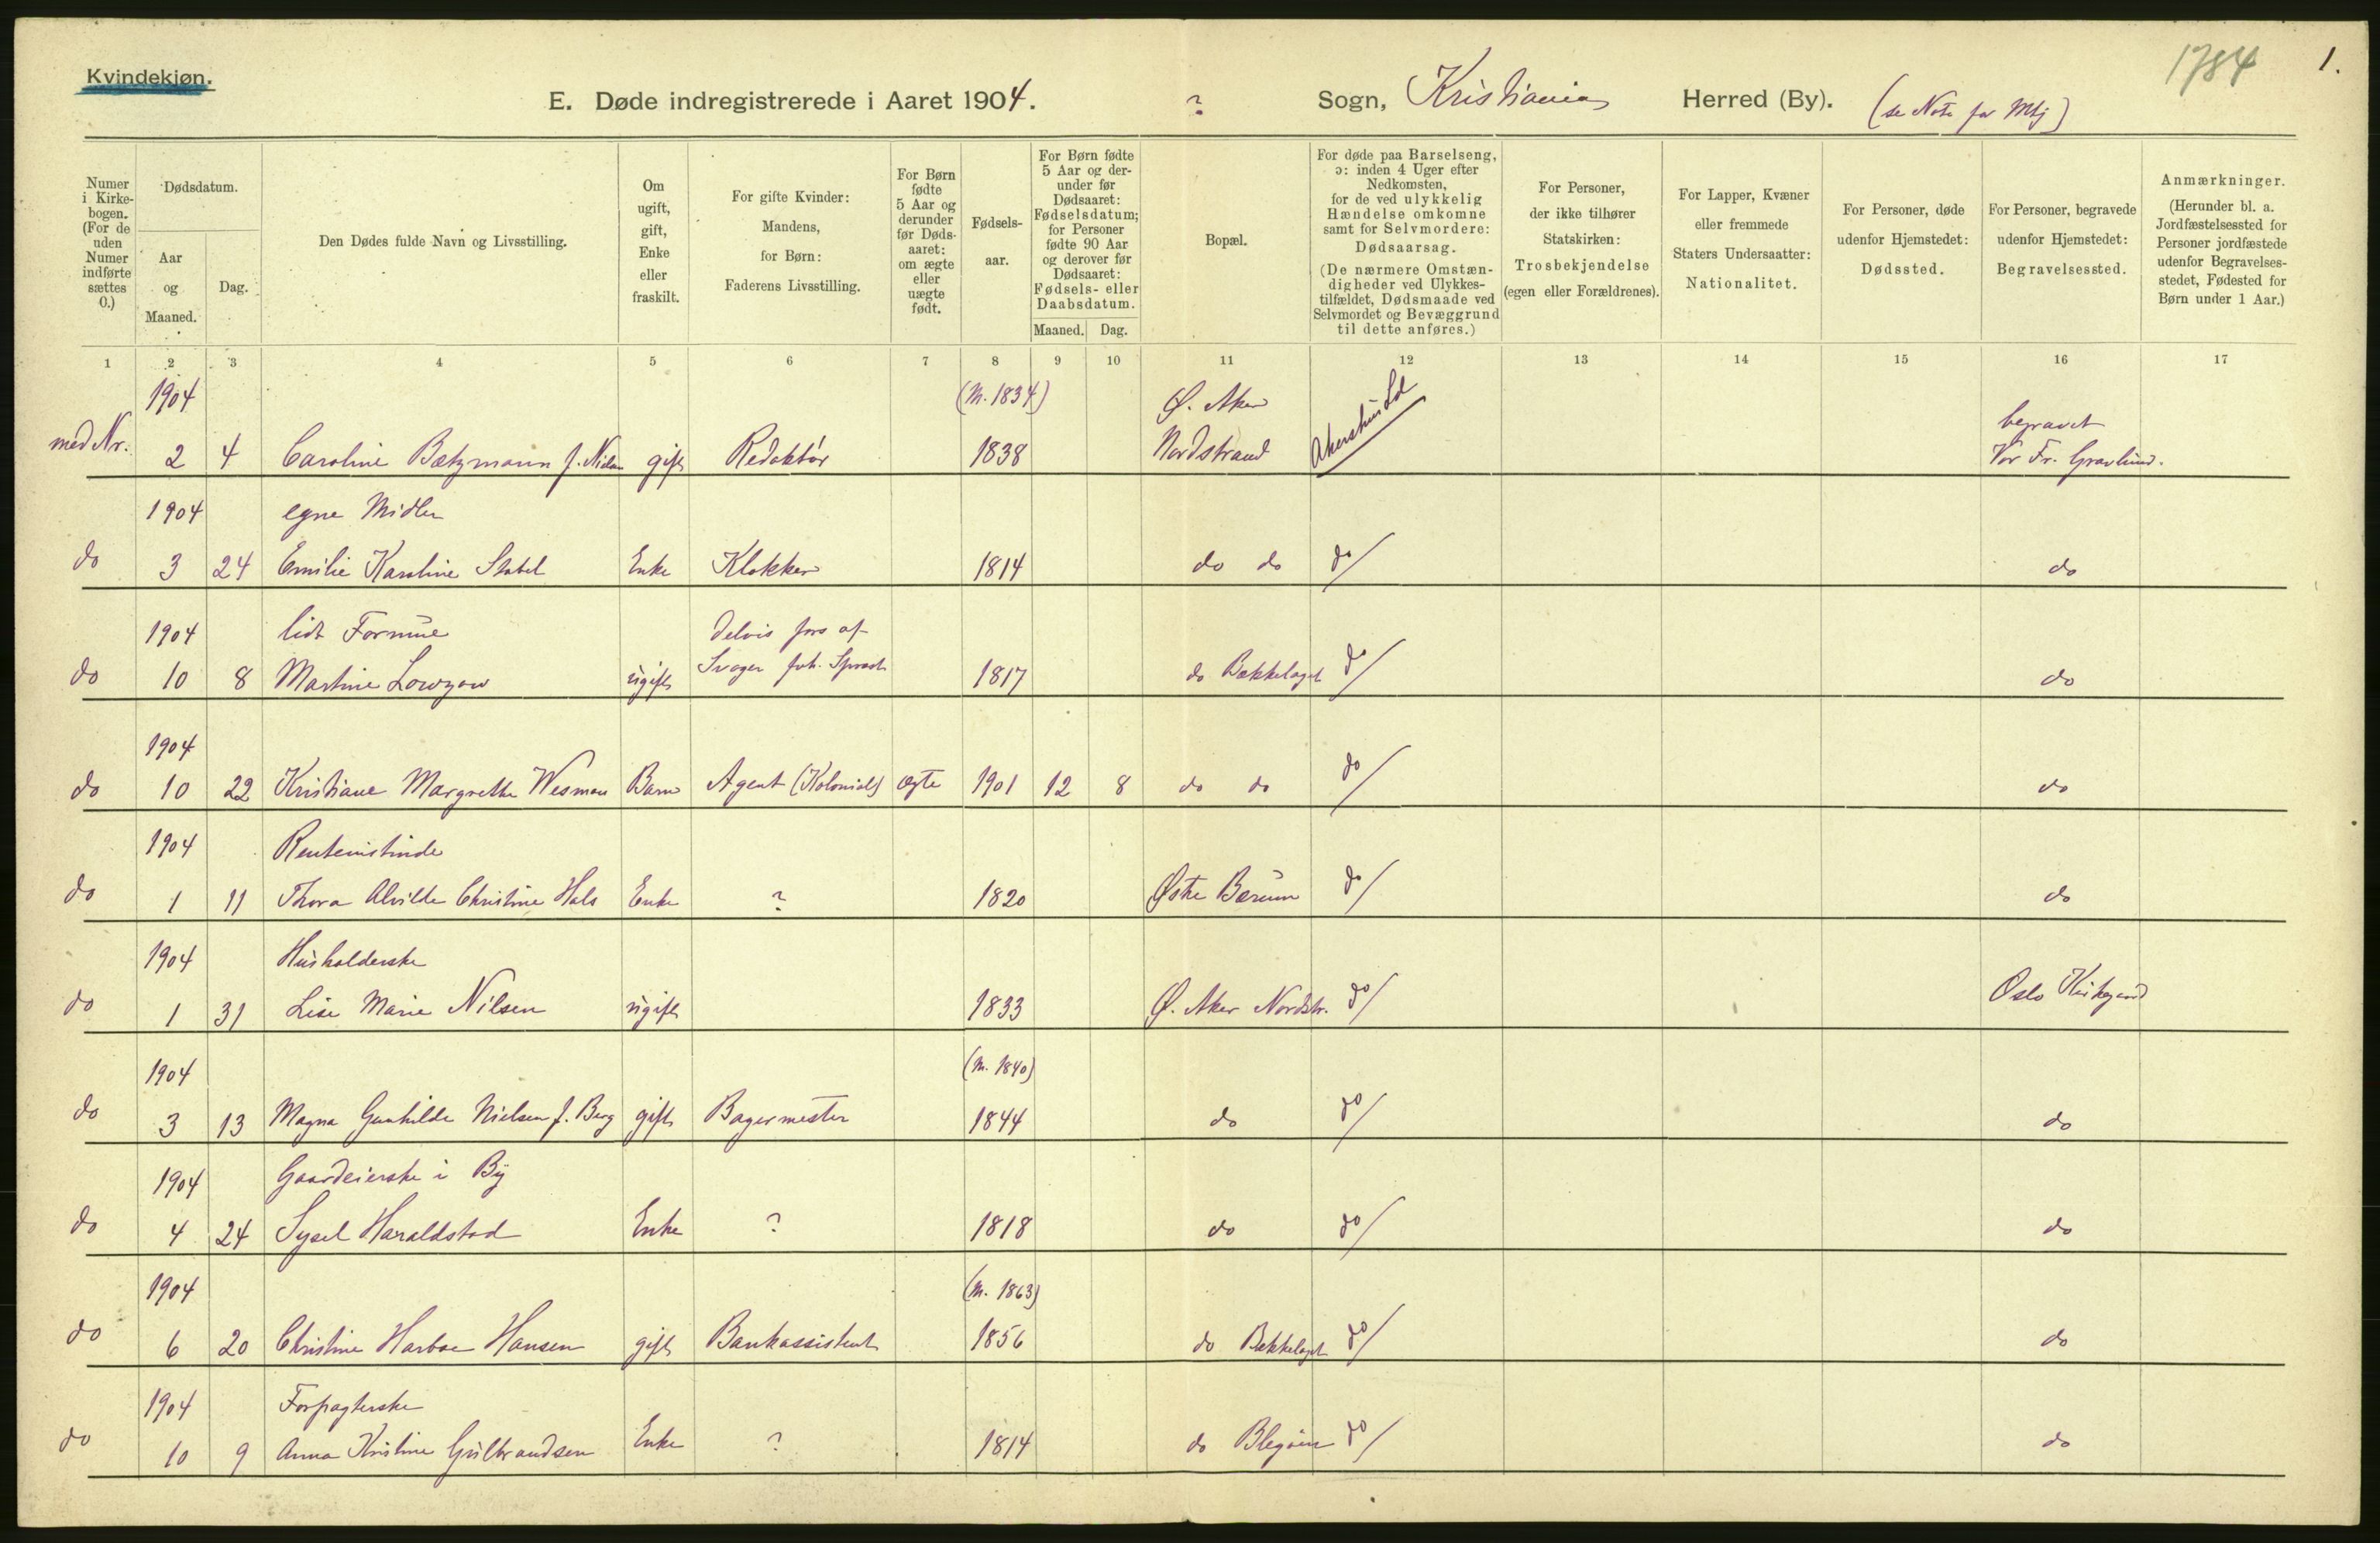 1784 1.
Kvindekjøn.
E. Døde indregistrerede i Aaret 1904. ? Sogn, Kristiania Herred (By). (se Note for Mkj)
Numer i Kirkebogen. (For de uden Numer indførte sættes 0.)
Dødsdatum.
Aar og Maaned.
Dag.
Den Dødes fulde Navn og Livsstilling.
Om ugift, gift, Enke eller fraskilt.
For gifte Kvinder: Mandens, for Børn: Faderens Livsstilling.
For Børn fødte 5 Aar og derunder før Dødsaaret: om ægte eller uægte født.
Fødselsaar.
For Børn fødte 5 Aar og derunder før Dødsaaret: Fødselsdatum; for Personer fødte 90 Aar og derover før Dødsaaret: Fødsels- eller Daabsdatum.
Maaned. Dag.
Bopæl.
For døde paa Barselseng, ɔ: inden 4 Uger efter Nedkomsten, for de ved ulykkelig Hændelse omkomne samt for Selvmordere: Dødsaarsag.
(De nærmere Omstændigheder ved Ulykkestilfældet, Dødsmaade ved Selvmordet og Bevæggrund til dette anføres.)
For Personer, der ikke tilhører Statskirken: Trosbekjendelse (egen eller Forældrenes).
For Lapper, Kvæner eller fremmede Staters Undersaatter: Nationalitet.
For Personer, døde udenfor Hjemstedet: Dødssted.
For Personer, begravede udenfor Hjemstedet: Begravelsessted.
Anmærkninger. (Herunder bl. a. Jordfæstelsessted for Personer jordfæstede udenfor Begravelsesstedet, Fødested for Børn under 1 Aar.)
1 2 3 4 5 6 7 8 9 10 11 12 13 14 15 16 17
1904 (M. 1834) Ø. Aker begravet
med Nr. 2 4 Caroline Bætzmann f. Nielsen gift Redaktør 1838 Nordstrand Akershus Vor Fr. Gravlund.
1904 egne Midler
do 3 24 Emilie Karoline Stabel Enke Klokker 1814 do do do/ do
1904 lidt Formue Delvis fors af
do 10 8 Martine Lowzow ugift Svoger 1817 do Bækkelaget do/ do
1904
do 10 22 Kristiane Margrethe Wesman Barn Agent (Kolonial) ægte 1901 12 8 do do do/ do
1904 Rentenistinde
do 1 11 Thora Alvilde Christine Hals Enke ? 1820 Østre Bærum do/ do
1904 Husholderske
do 1 31 Lise Marie Nilsen ugift 1833 Ø. Aker Nordstr. do/ Oslo Kirkegaard
1904 (M. 1840)
do 3 13 Magna Gunhilde Nielsen f. Berg gift Bagermester 1844 do do/ do
1904 Gaardeierske i By
do 4 24 Sysel Haraldstad Enke ? 1818 do do/ do
1904 (M. 1863)
do 6 20 Christine Harboe Hansen gift Bankassistent 1856 do Bækkelaget do/ do
1904 Forpagterske
do 10 9 Anna Kristine Gulbrandsen Enke ? 1814 do Blegøen do/ do